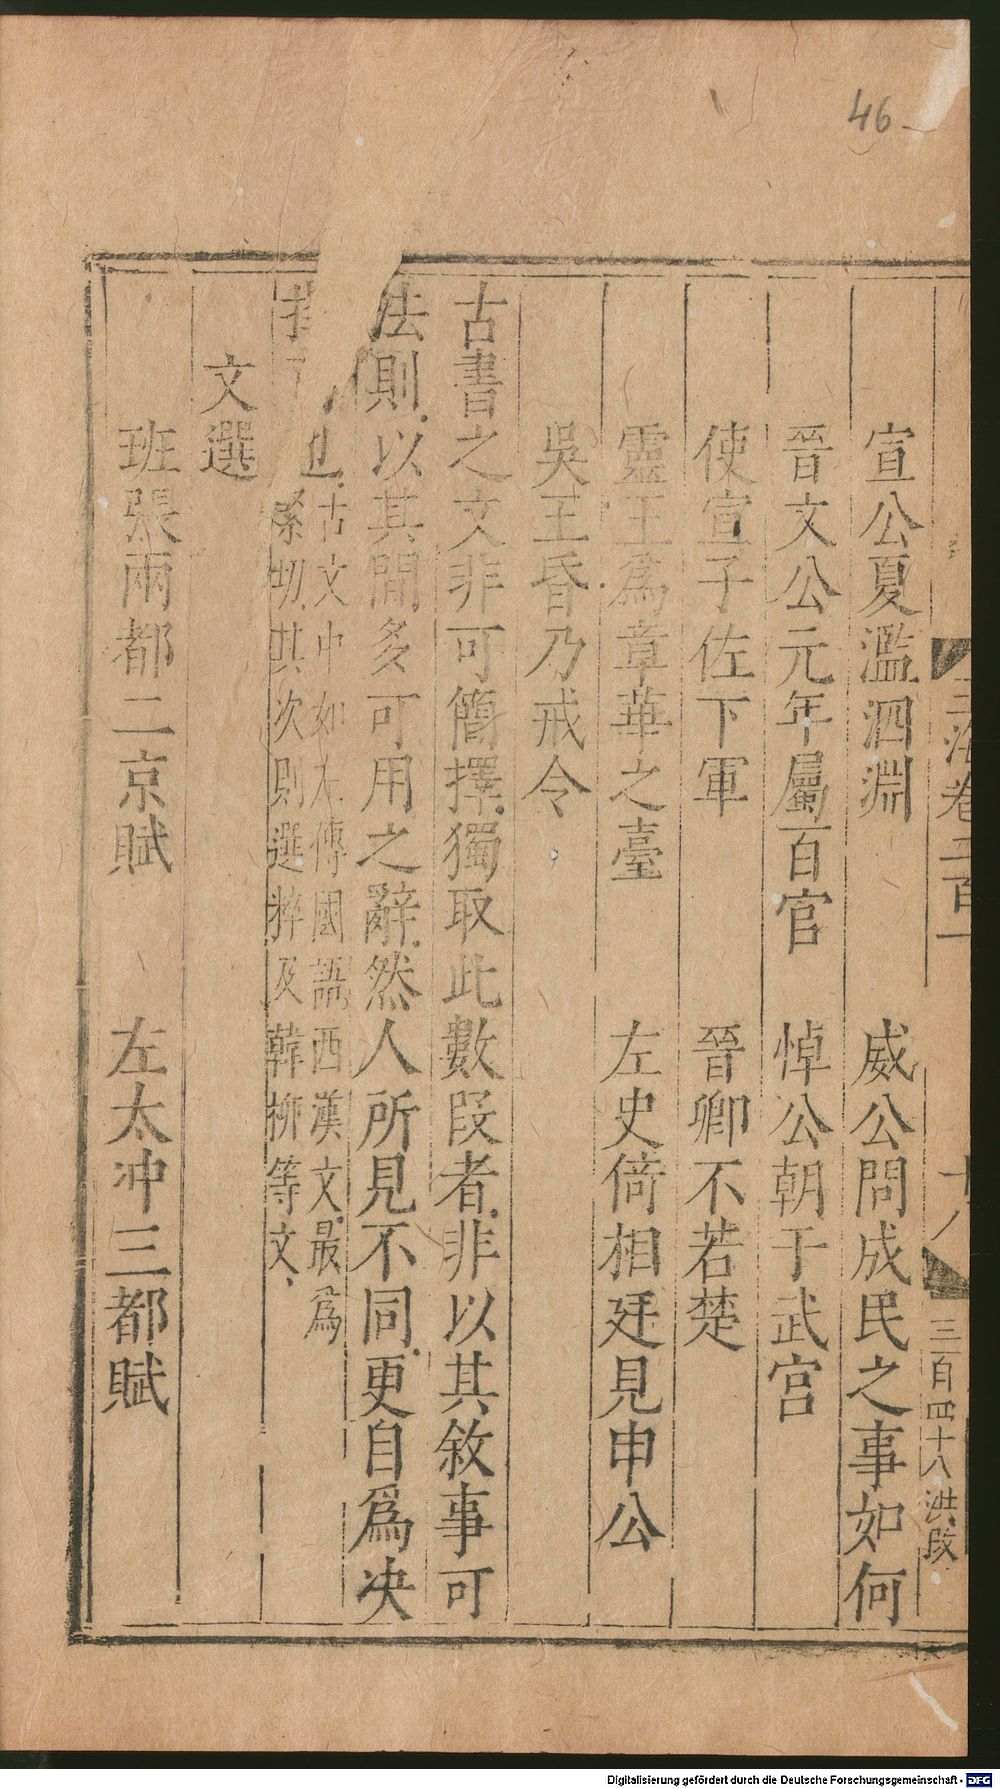 46
玉海卷二百一
十八
三百四十八
洪段
宣公夏濫泗淵
威公問成民之事如何
晉文公元年屬百官
悼公朝于武宮
使宣子佐下軍
晉卿不若楚
靈王爲章華之臺
左史倚相廷見申公
吳王昏乃戒令
古書之文非可簡擇獨取此數段者非以其敘事可
法則以其間多可用之辭然人所見不同更自爲决
也古文中如左傳國語西漢文最爲
緊切其次則選粹及韓柳等文
文選
班張兩都二京賦
左太冲三都賦
Digitalisierung gefördert durch die Deutsche Forschungsgemeinschaft - DFG